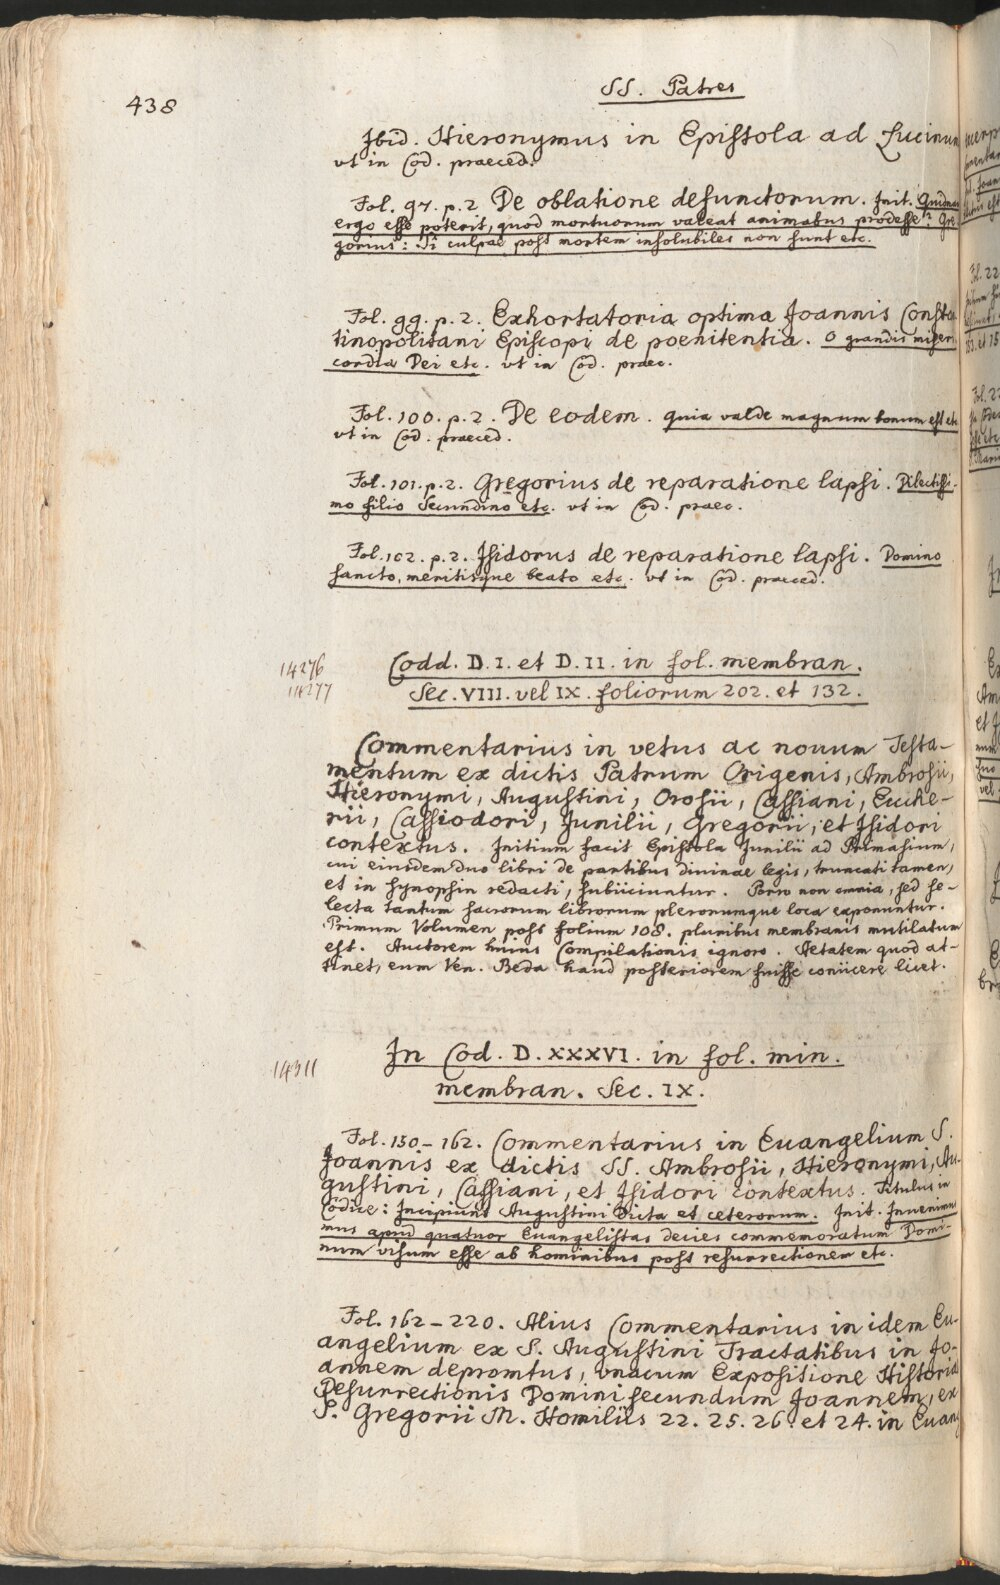 438
SS. Patres
Ibid. Hieronymus in Epistola ad Lucinum
vt in Cod. praeced.
Fol. 97. p. 2 De oblatione defunctorum. Init. Quidnam
ergo esse poterit, quod mortuorum valeat animabus prodesse? Gre-
gorius: Si culpae post mortem insolubiles non sunt etc.
Fol. 99. p. 2. Exhortatoria optima Joannis Constan
tinopolitani Episcopi de poenitentia. O grandis miseri
cordia Dei etc. vt in Cod. praec.
Fol. 100. p. 2. De eodem. Quia valde magnum bonum est etc
vt in Cod. praeced.
Fol. 101. p. 2. Gregorius de reparatione lapsi. Dilectissi-
mo filio Secundino etc. vt in Cod. praec.
Fol. 102. p. 2. Isidorus de reparatione lapsi. Domino
sancto, meritisque beato etc. vt in Cod. praeced.
14276
14277
Codd. D. I. et D. II. in fol. membran.
Sec. VIII. vel IX. foliorum 202. et 132.
Commentarius in vetus ac nouum Testa-
mentum ex dictis Patrum Origenis, Ambrosii,
Hieronymi, Augustini, Orosii, Cassiani, Euche-
rii, Cassiodori, Junilii, Gregorii, et Isidori
contextus. Initium facit Epistola Junilii ad Primasium,
cui eiusdem duo libri de partibus diuinae legis, truncati tamen,
et in synopsin redacti, subiiciuntur. Porro non omnia, sed se-
lecta tantum sacrorum librorum plerorumque loca exponuntur.
Primum Volumen post folium 108. pluribus membranis mutilatum
est. Auctorem huius Compilationis ignoro. Aetatem quod at-
tinet, eum Ven. Beda haud posteriorem fuisse coniicere licet.
14311
In Cod. D. XXXVI. in fol. min.
membran. Sec. IX.
Fol. 130-162. Commentarius in Euangelium S.
Joannis ex dictis SS. Ambrosii, Hieronymi, Au-
gustini, Cassiani, et Isidori contextus. Titulus in
Codice: Incipiunt Augustini Dicta et ceterorum. Init. Inuenimus
mus apud quatuor Euangelistas decies commemoratum Domi-
num visum esse ab hominibus post resurrectionem etc.
Fol. 162-220. Alius Commentarius in idem Eu-
angelium ex S. Augustini Tractatibus in Jo-
annem depromtus, vnacum Expositione Historiae
Resurrectionis Domini secundum Joannem, ex
S. Gregorii M. Homiliis 22. 25. 26. et 24. in Euang